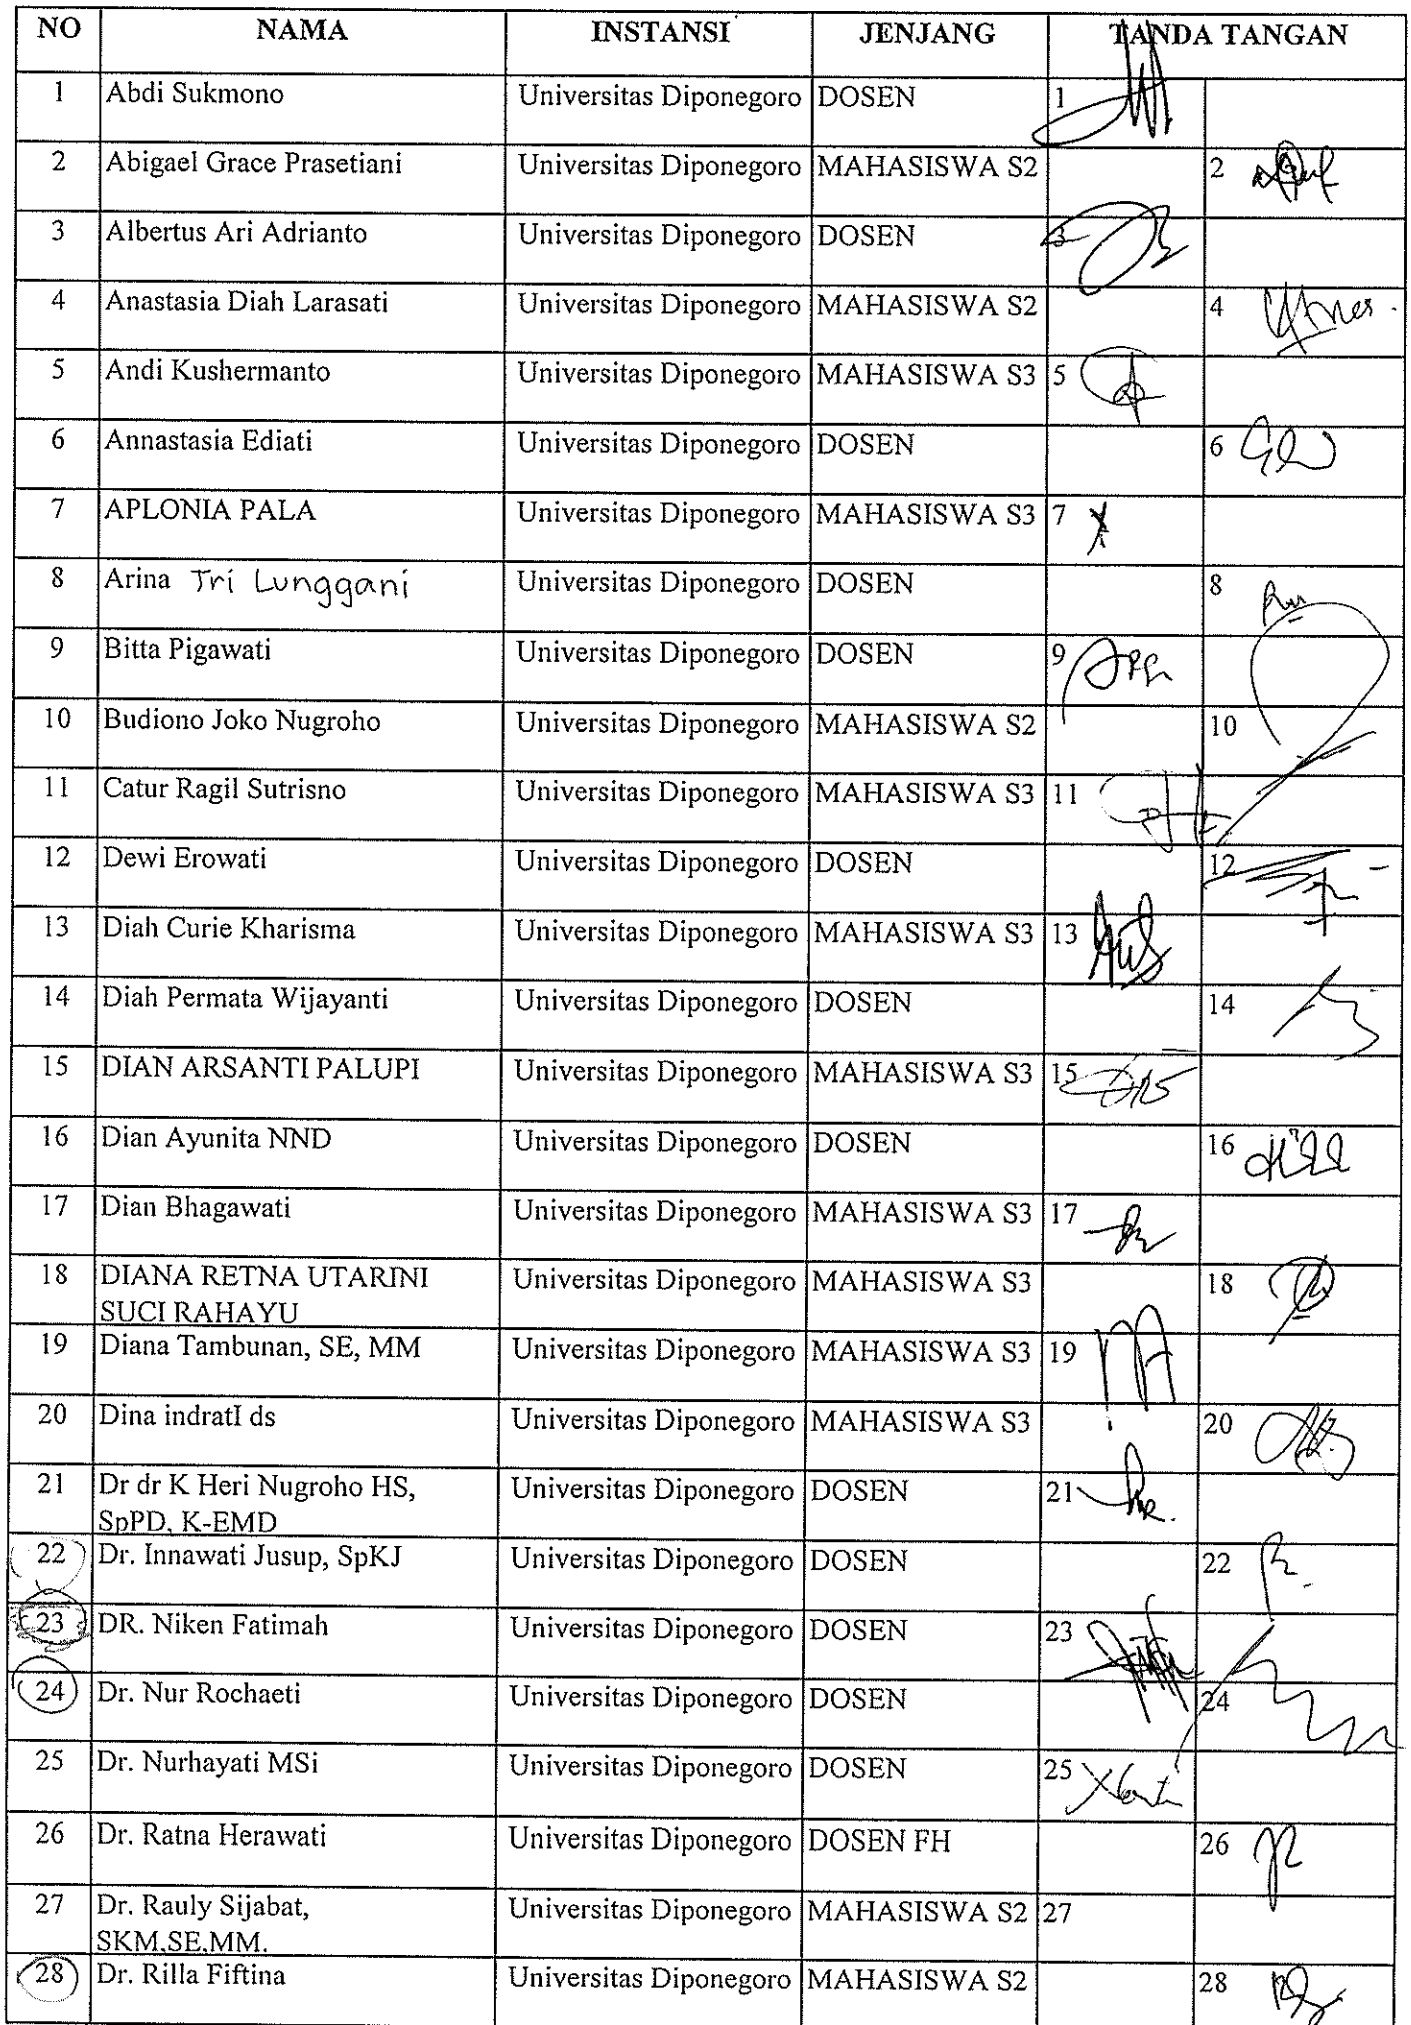 NO NAMA INSTANSI JENJANG TANDA TANGAN
1 Abdi Sukmono Universitas Diponegoro DOSEN 1
2 Abigael Grace Prasetiani Universitas Diponegoro MAHASISWA S2 2
3 Albertus Ari Adrianto Universitas Diponegoro DOSEN 3
4 Anastasia Diah Larasati Universitas Diponegoro MAHASISWA S2 4
5 Andi Kushermanto Universitas Diponegoro MAHASISWA S3 5
6 Annastasia Ediati Universitas Diponegoro DOSEN 6
7 APLONIA PALA Universitas Diponegoro MAHASISWA S3 7
8 Arina Tri Lunggani Universitas Diponegoro DOSEN 8
9 Bitta Pigawati Universitas Diponegoro DOSEN 9
10 Budiono Joko Nugroho Universitas Diponegoro MAHASISWA S2 10
11 Catur Ragil Sutrisno Universitas Diponegoro MAHASISWA S3 11
12 Dewi Erowati Universitas Diponegoro DOSEN 12
13 Diah Curie Kharisma Universitas Diponegoro MAHASISWA S3 13
14 Diah Permata Wijayanti Universitas Diponegoro DOSEN 14
15 DIAN ARSANTI PALUPI Universitas Diponegoro MAHASISWA S3 15
16 Dian Ayunita NND Universitas Diponegoro DOSEN 16
17 Dian Bhagawati Universitas Diponegoro MAHASISWA S3 17
18 DIANA RETNA UTARINI Universitas Diponegoro MAHASISWA S3 18
SUCI RAHAYU
19 Diana Tambunan, SE, MM Universitas Diponegoro MAHASISWA S3 19
20 Dina indratI ds Universitas Diponegoro MAHASISWA S3 20
21 Dr dr K Heri Nugroho HS, Universitas Diponegoro DOSEN 21
SpPD, K-EMD
22 Dr. Innawati Jusup, SpKJ Universitas Diponegoro DOSEN 22
23 DR. Niken Fatimah Universitas Diponegoro DOSEN 23
24 Dr. Nur Rochaeti Universitas Diponegoro DOSEN 24
25 Dr. Nurhayati MSi Universitas Diponegoro DOSEN 25
26 Dr. Ratna Herawati Universitas Diponegoro DOSEN FH 26
27 Dr. Rauly Sijabat, Universitas Diponegoro MAHASISWA S2 27
SKM,SE,MM.
28 Dr. Rilla Fiftina Universitas Diponegoro MAHASISWA S2 28